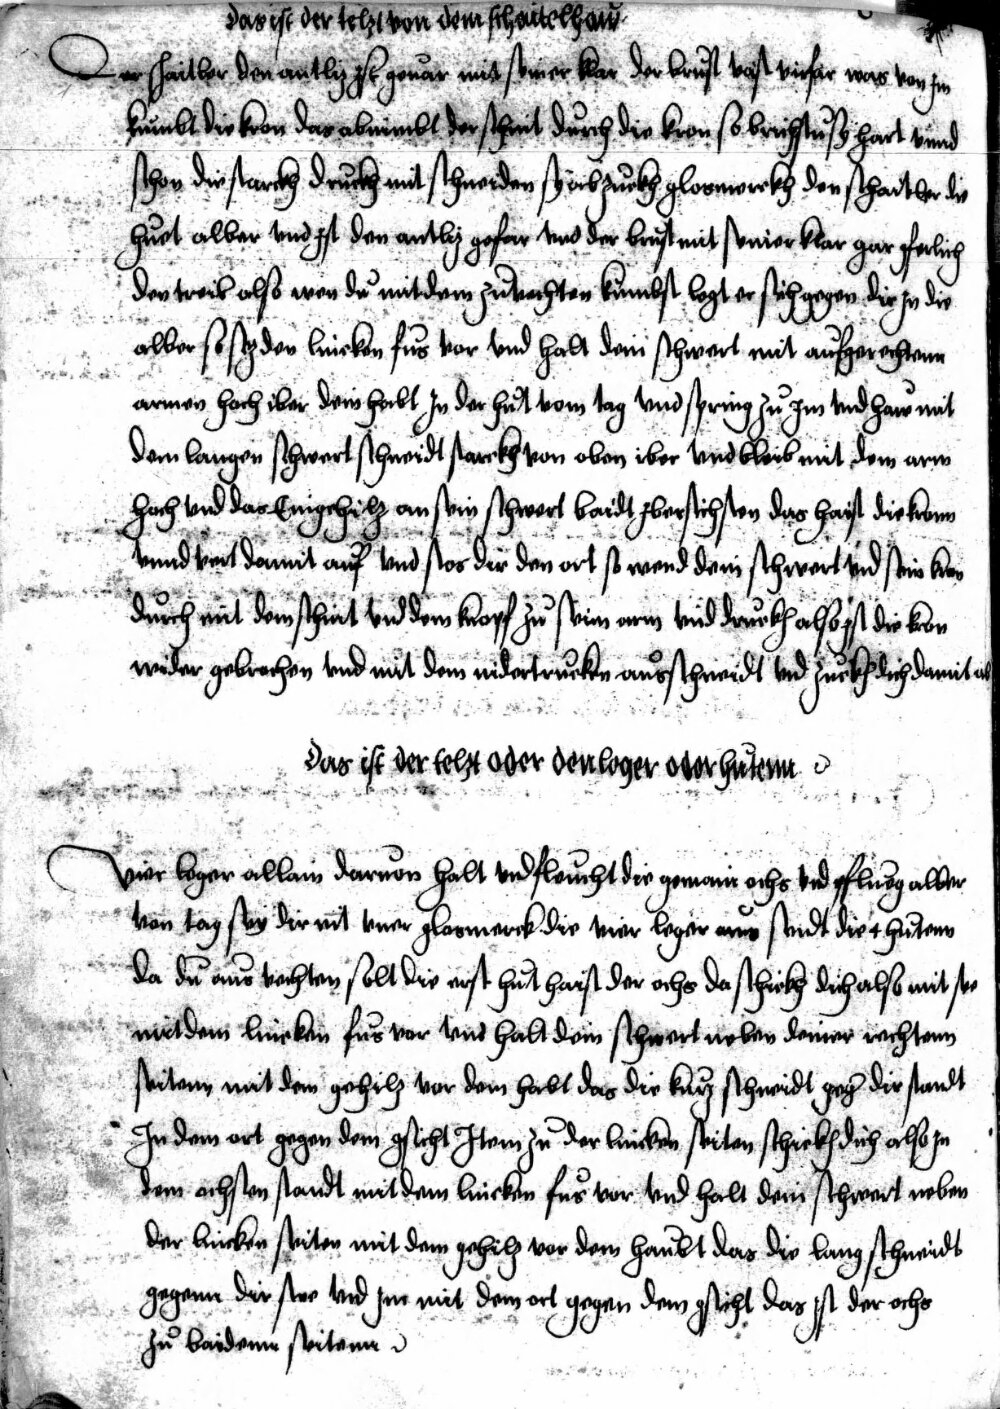 Das ist der text von dem schaitelhaw
Der schaitler den antlitz ist gevar mit seiner kar der brust vast virfar was von jm
kumbt die kron das abnimbt der schnit durch die kron so brichstus hart vnnd
schon die starckh druckh mit schneiden sy abzuckh glosmerckh den schaitler die
huet alber vnd ist den antlitz gefar vnd der brust mit seiner klar gar gferlich
den treib also wen du mit dem zuvechten kumbst legt er sich gegen dir in die
alber so setz den lincken fus vor vnd halt dein schwert mit aufgerechtenn
armen hoch iber dein habt In der hut vom tag vnd spring zu jm vnd haw mit
dem langen schwert schneidt starckh von oben iber vnd bleib mit dem arm
hoch vnd das Eingehilz an sein schwert baidt ibersichsten das haist die kronn
vnnd vert damit auf vnd stos dir den ort so wend dein schwert vnd sein kron
durch mit dem schnit vnd dem knopf zu seim arm vnd druckh also ist die kron
wider gebrochen vnd mit dem nidertrucken ausschneidt vnd zuckh dich damit ab
Das ist der text oder den leger oder hutenn
Vier leger allain darvon halt vnd fleucht die gemain ochs vnd pflueg alber
von tag sey dir nit vner glosmerck die vier leger aus seindt die 4 hutenn
da du aus vechten solt die erst hut haist der ochs da schickh dich also mit ste
mit dem lincken fus vor vnd halt dein schwert neben deiner rechtenn
seitenn mit dem gehilz vor dem habt das die kurz schneidt gegen dir standt
In dem ort gegen dem gsicht Item zu der lincken seiten schickh dich also in
dem ochsten standt mit dem lincken fus vor vnd halt dein schwert neben
der lincken seiten mit dem gehilz vor dem haubt das die lang schneidt
gegenn dir stee vnd jm mit dem ort gegen dem gsicht das ist der ochs
zu baidenn seitenn